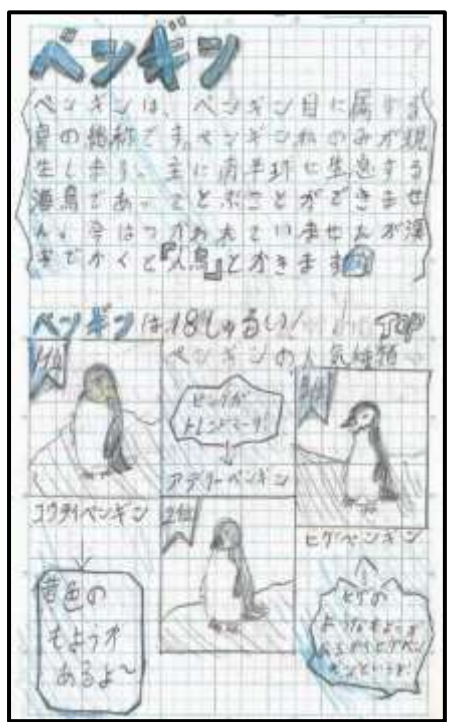 ペンギン
ペンギンは、ペンギン目に属する
鳥の総称です。ペンギン科のみが現
生します。主に南半球に生息する
海鳥であってとぶことができませ
ん。今はつかわれていませんが漢
字でかくと『人鳥』とかきます
ペンギンは18しゅるい!
TOP
ペンギンの人気種類
1位
コウテイペンギン
黄色の
もようが
あるよ~
ピンクが
トレンドマーク!
アデリーペンギン
2位
3位
ヒゲペンギン
ヒゲの
ようなもようが
あるからヒゲペン
ギンというよ!